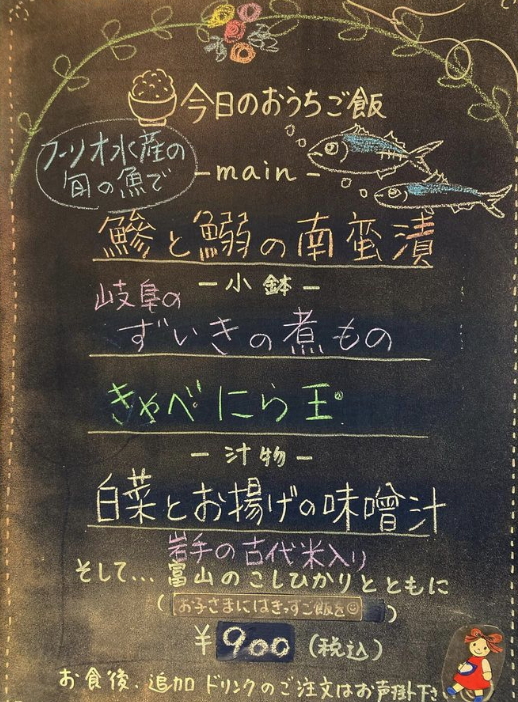 今日のおうちご飯
フーリオ水産の
旬の魚で
-main-
鯵と鰯の南蛮漬
-小鉢-
岐阜の
ずいきの煮もの
きゃべにら玉
-汁物-
白菜とお揚げの味噌汁
岩手の古代米入り
そして... 富山のこしひかりとともに
(お子さまにはきっずご飯を)
¥900(税込)
お食後、追加ドリンクのご注文はお声掛下さい